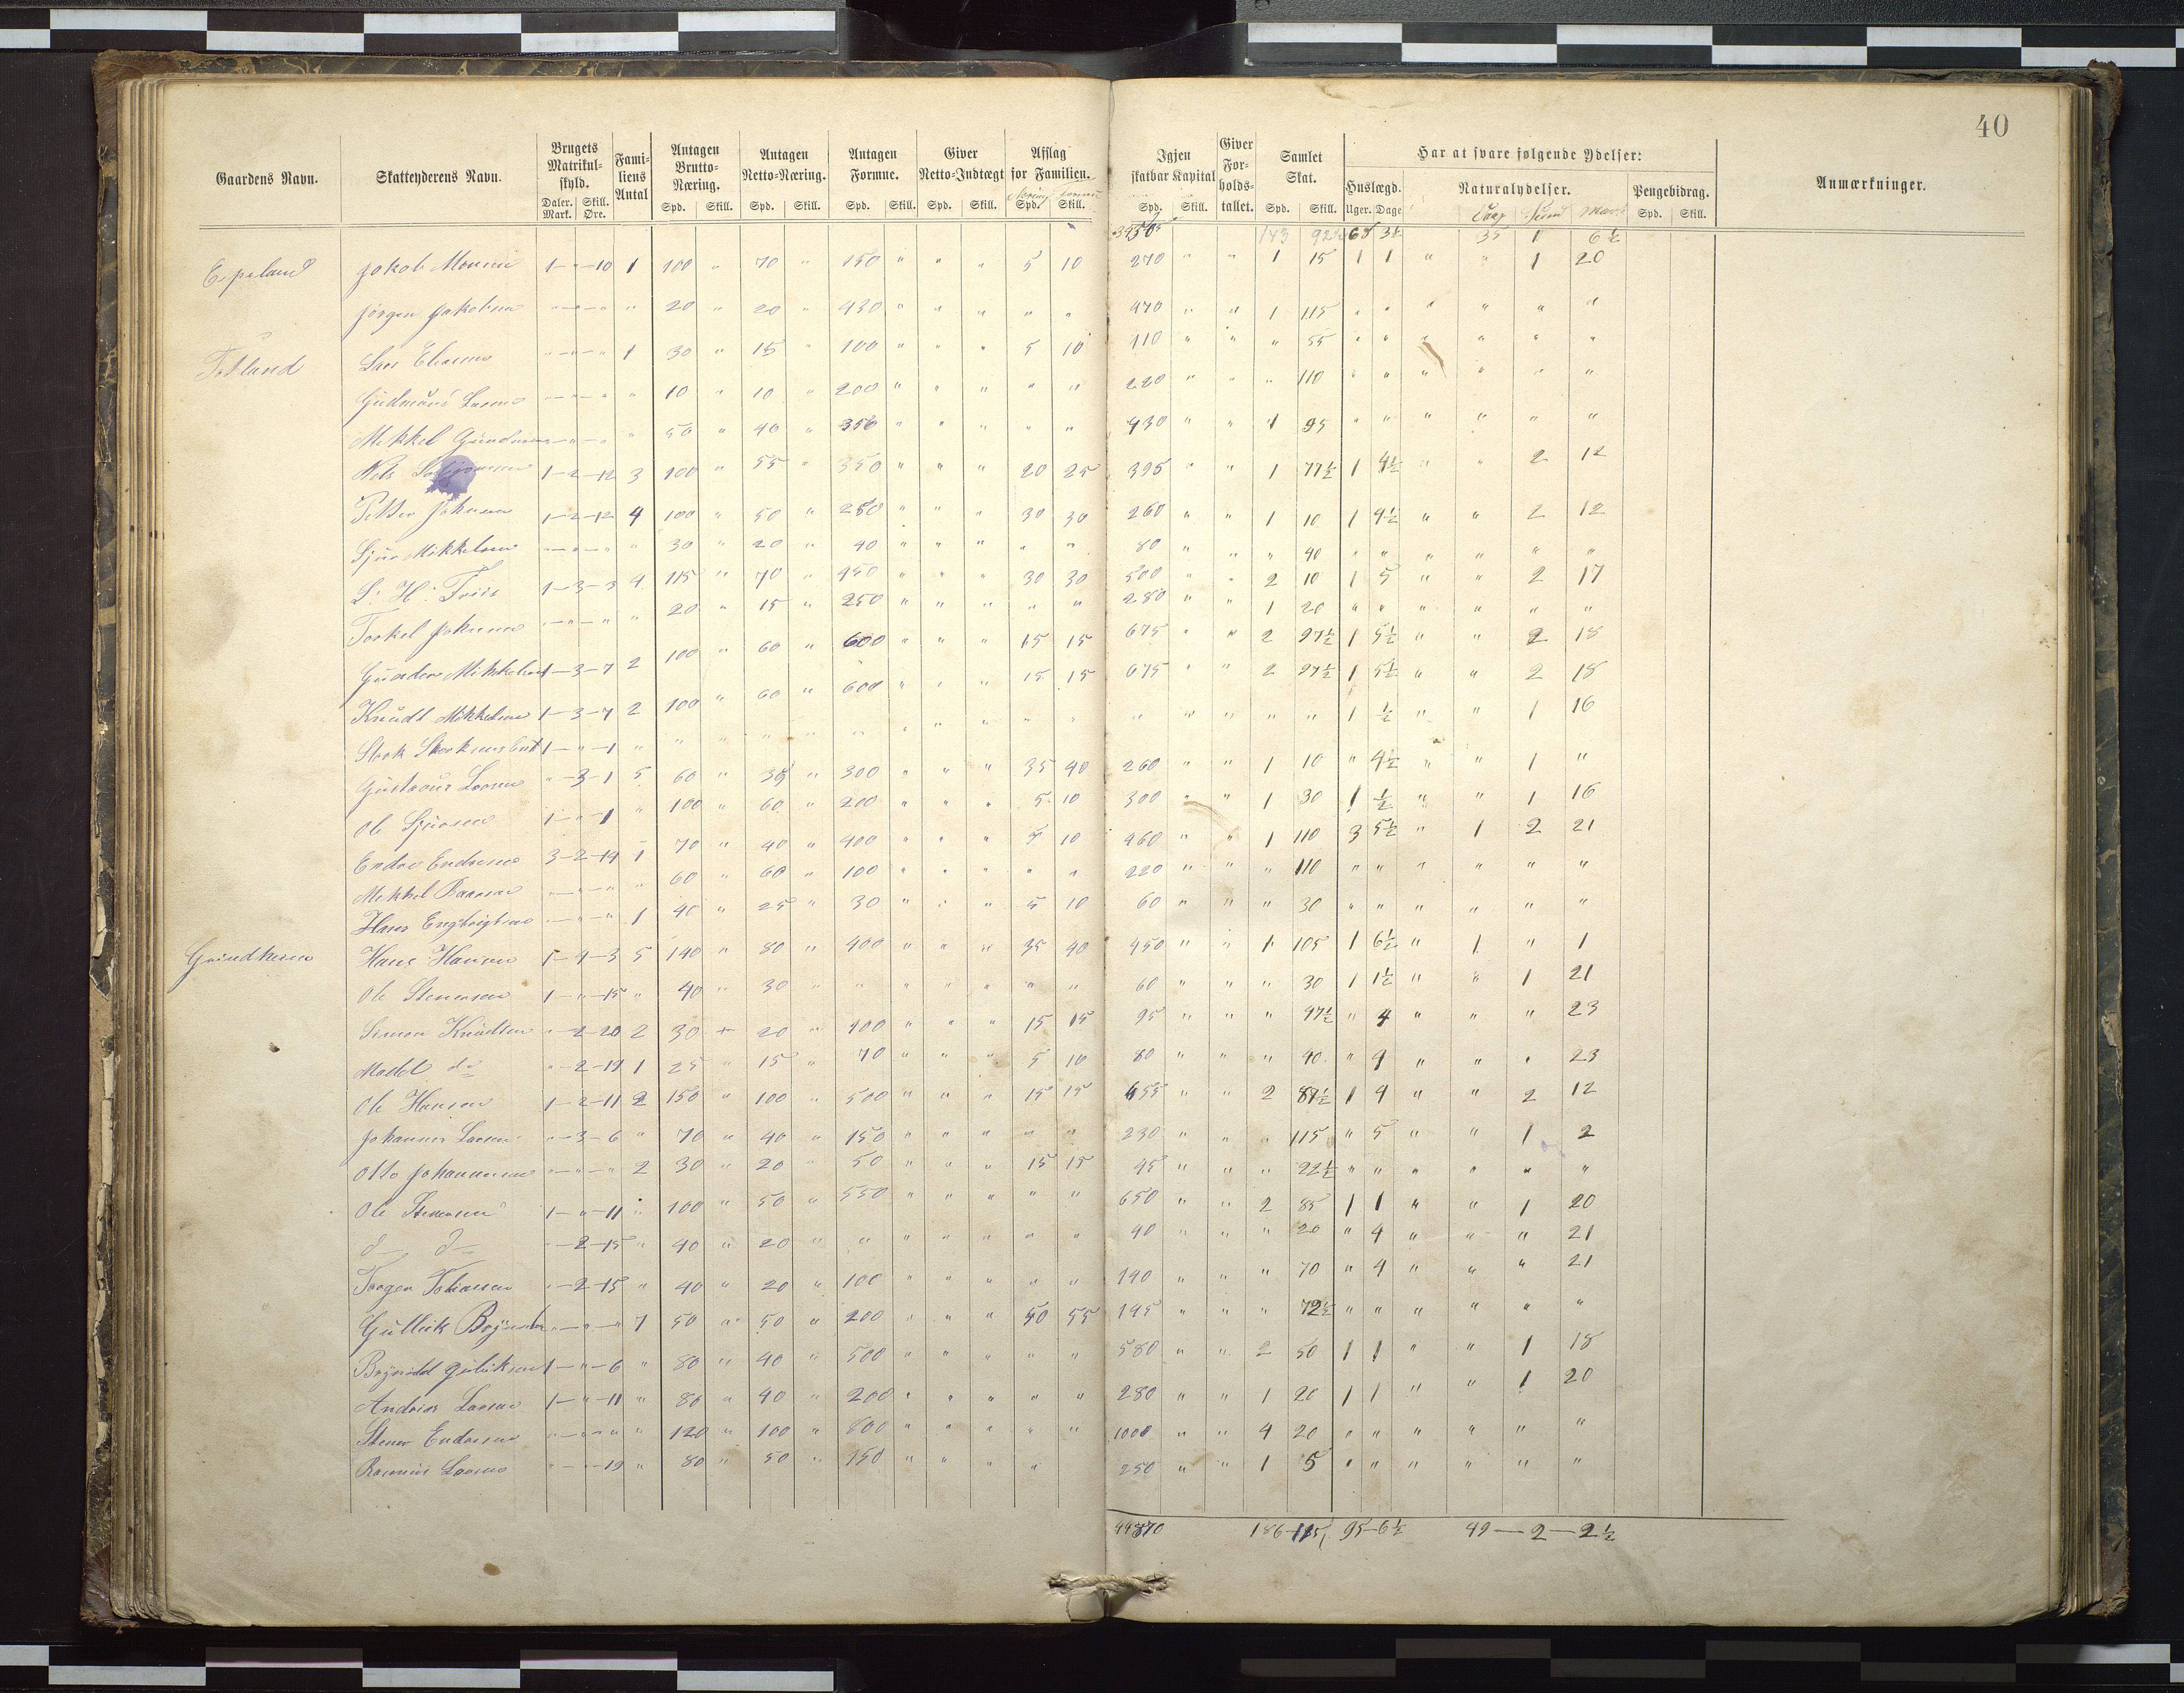 40
Gaardens Navn. Skatteyderens Navn. Brugets Matrikul-skyld. Daler. Mark. Skill. Øre. Fami-liens Antal Antagen Brutto-Næring. Spd. Skill. Antagen Netto-Næring. Spd. Skill. Antagen Formue. Spd. Skill. Giver Netto-Indtægt Spd. Skill. Afslag for Familien. Spd. Skill. Igjen skatbar Kapital Spd. Skill. Giver For-holds-tallet. Samlet Skat. Spd. Skill. Har at svare følgende Ydelser: Huslægd. Uger. Dage Naturalydelser. Pengebidrag. Spd. Skill. Anmærkninger.
143 92½ 68 3½ 35 1 6½
Epeland Jakob Monsen 1 - " - 10 1 100 " 70 " 150 " " " 5 10 270 " " 1 15 1 1 " " 1 20
Jörgen Jakobsen " - " - " " 20 " 20 " 430 " " " " " 470 " " 1 115 " " " " " "
Totland Lars 1 30 " 15 " 100 " " " 5 10 110 " " " 55 " " " " " "
Gudmund Larsen " - " - " " 10 " 10 " 200 " " " " " 220 " " " 110 " " " " " "
Mikkel Gundersen " - " - " " 50 " 40 " 350 " " " " " 430 " " 1 95 " " " " " "
Nels 1 - 2 - 12 3 100 " 55 " 350 " " " 20 25 395 " " 1 77½ 1 4½ " " 2 12
Petter Johnsen 1 - 2 - 12 4 100 " 50 " 250 " " " 30 30 260 " " 1 10 1 4½ " " 2 12
Sjur Mikkelsen " - " - " " 30 " 20 " 40 " " " " " 80 " " " 40 " " " " " "
L. H. 1 - 3 - 3 4 115 " 70 " 450 " " " 30 30 500 " " 2 10 1 5 " " 2 17
Torkel Johnsen " - " - " " 20 " 15 " 250 " " " " " 280 " " 1 20 " " " " " "
Gunder Mikkelsen 1 - 3 - 7 2 100 " 60 " 600 " " " 15 15 675 " " 2 97½ 1 5½ " " 2 18
Knudt Mikkelsen 1 - 3 - 7 2 100 " 60 " 600 " " " 15 15 675 " " 2 97½ 1 5½ " " 2 18
1 - " - 1 " " " " " " " " " " " " " " " " 1 ½ " " 1 16
Gustavus Larsen " - 3 - 1 5 60 " 35 " 300 " " " 35 40 260 " " 1 10 " 4½ " " 1 "
Ole Sjursen 1 - " - 1 " 100 " 60 " 200 " " " 5 10 300 " " 1 30 1 ½ " " 1 16
Endre Endresen 3 - 2 - 14 1 70 " 40 " 400 " " " 5 10 460 " " 1 110 3 5½ " 1 2 21
Mikkel " - " - " " 60 " 60 " 100 " " " " " 220 " " " 110 " " " " " "
Hans Engbrigtsen " - " - " 1 40 " 25 " 30 " " " 5 10 60 " " " 30 " " " " " "
Grindheim Hans Hansen 1 - 4 - 3 5 140 " 80 " 400 " " " 35 40 450 " " 1 105 1 6½ " 1 " 1
Ole Stenersen 1 - " - 15 " 40 " 30 " " " " " " " 60 " " " 30 1 1½ " " 1 21
Simon Knudsen " - 2 - 20 2 30 + 20 " 100 " " " 15 15 95 " " " 47½ " 4 " " " 23
do " - 2 - 19 1 25 " 15 " 70 " " " 5 10 80 " " " 40 " 4 " " " 23
Ole Hansen 1 - 2 - 11 2 150 " 100 " 500 " " " 15 15 655 " " 2 87½ 1 4 " " 2 12
Johannes Larsen " - 3 - 6 " 70 " 40 " 150 " " " " " 230 " " " 115 " 5 " " 1 2
Otto Johannesen " - " - " 2 30 " 20 " 50 " " " 15 15 45 " " " 22½ " " " " " "
Ole Stenersen 1 - " - 11 " 100 " 50 " 550 " " " " " 650 " " 2 85 1 1 " " 1 20
do do " - 2 - 15 " 40 " 20 " " " " " " " 40 " " " 20 " 4 " " " 21
" - 2 - 15 " 40 " 20 " 100 " " " " " 140 " " " 70 " 4 " " " 21
Gullik " - " - " 7 50 " 50 " 200 " " " 50 55 145 " " " 72½ " " " " " "
Guliksen 1 - " - 6 " 80 " 40 " 500 " " " " " 580 " " 2 50 1 1 " " 1 18
Andreas Larsen 1 - " - 11 " 80 " 40 " 200 " " " " " 280 " " 1 20 1 1 " " 1 20
Stener Endresen " - " - " " 120 " 100 " 800 " " " " " 1000 " " 4 20 " " " " " "
Rasmus Larsen " - " - 19 " 80 " 50 " 150 " " " " 250 " " 1 5 " " " " " "
44870 186 - 115 95 - 6½ 49 - 2 - 2½